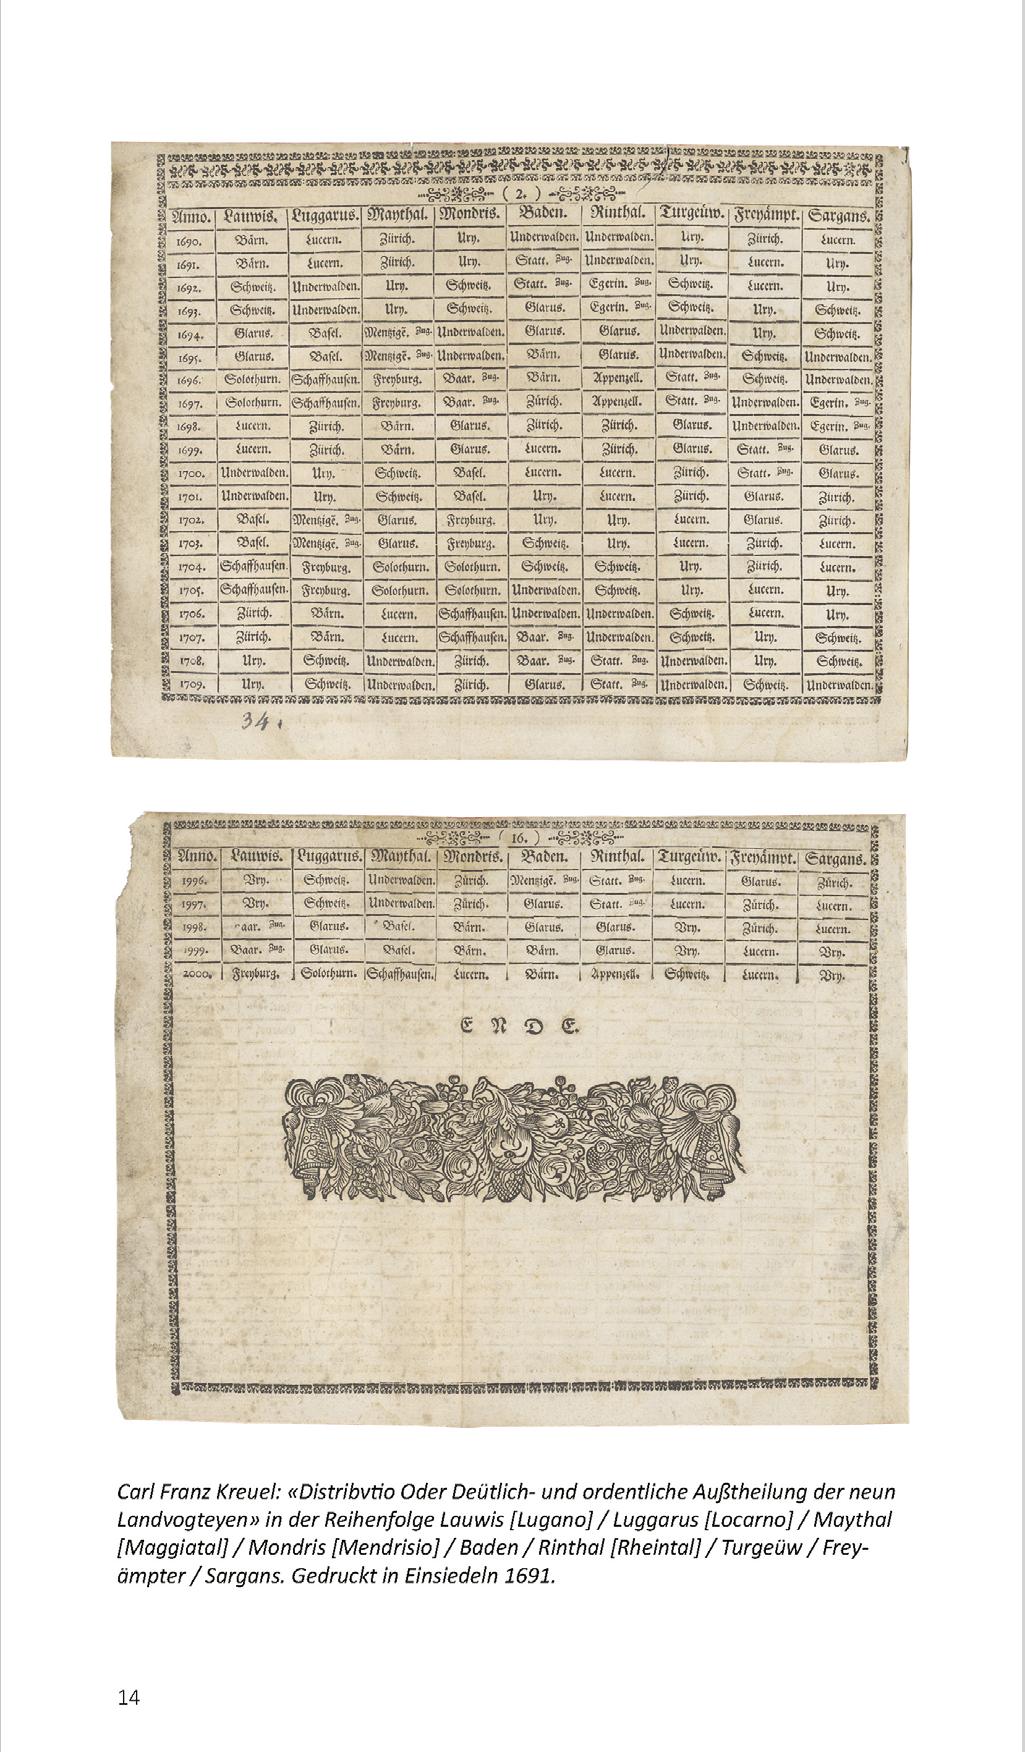 ( 2. )
Anno. Lauwis. Luggarus. Maythal. Mondris. Baden. Rinthal. Turgeüw. Freyämpt. Sargans.
1690. Bärn. Lucern. Zürich. Ury. Underwalden. Underwalden. Ury. Zürich. Lucern.
1691. Bärn. Lucern. Zürich. Ury. Statt. Zug. Underwalden. Ury. Lucern. Ury.
1692. Schweitz. Underwalden. Ury. Schweitz. Statt. Zug. Egerin. Zug. Schweitz. Lucern. Ury.
1693. Schweitz. Underwalden. Ury. Schweitz. Glarus. Egerin. Zug. Schweitz. Ury. Schweitz.
1694. Glarus. Basel. Mentzigẽ. Zug. Underwalden. Glarus. Glarus. Underwalden. Ury. Schweitz.
1695. Glarus. Basel. Mentzigẽ. Zug. Underwalden. Bärn. Glarus. Underwalden. Schweitz. Underwalden.
1696. Solothurn. Schaffhausen. Freyburg. Baar. Zug. Bärn. Appenzell. Statt. Zug. Schweitz. Underwalden.
1697. Solothurn. Schaffhausen. Freyburg. Baar. Zug. Zürich. Appenzell. Statt. Zug. Underwalden. Egerin. Zug.
1698. Lucern. Zürich. Bärn. Glarus. Zürich. Zürich. Glarus. Underwalden. Egerin. Zug.
1699. Lucern. Zürich. Bärn. Glarus. Lucern. Zürich. Glarus. Statt. Zug. Glarus.
1700. Underwalden. Ury. Schweitz. Basel. Lucern. Lucern. Zürich. Statt. Zug. Glarus.
1701. Underwalden. Ury. Schweitz. Basel. Ury. Lucern. Zürich. Glarus. Zürich.
1702. Basel. Mentzigẽ. Zug. Glarus. Freyburg. Ury. Ury. Lucern. Glarus. Zürich.
1703. Basel. Mentzigẽ. Zug. Glarus. Freyburg. Schweitz. Ury. Lucern. Zürich. Lucern.
1704. Schaffhausen. Freyburg. Solothurn. Solothurn. Schweitz. Schweitz. Ury. Zürich. Lucern.
1705. Schaffhausen. Freyburg. Solothurn. Solothurn. Underwalden. Schweitz. Ury. Lucern. Ury.
1706. Zürich. Bärn. Lucern. Schaffhausen. Underwalden. Underwalden. Schweitz. Lucern. Ury.
1707. Zürich. Bärn. Lucern. Schaffhausen. Baar. Zug. Underwalden. Schweitz. Ury. Schweitz.
1708. Ury. Schweitz. Underwalden. Zürich. Baar. Zug. Statt. Zug. Underwalden. Ury. Schweitz.
1709. Ury. Schweitz. Underwalden. Zürich. Glarus. Statt. Zug. Underwalden. Schweitz. Underwalden.
34.
( 16. )
Anno. Lauwis. Luggarus. Maythal. Mondris. Baden. Rinthal. Turgeüw. Freyämpt. Sargans.
1996. Vry. Schweitz. Underwalden. Zürich. Mentzigẽ. Zug. Statt. Zug. Lucern. Glarus. Zürich.
1997. Vry. Schweitz. Underwalden. Zürich. Glarus. Statt. Zug. Lucern. Zürich. Lucern.
1998. aar. Zug. Glarus. Basel. Bärn. Glarus. Glarus. Vry. Zürich. Lucern.
1999. Baar. Zug. Glarus. Basel. Bärn. Bärn. Glarus. Vry. Lucern. Vry.
2000. Freyburg. Solothurn. Schaffhausen. Lucern. Bärn. Appenzell. Schweitz. Lucern. Vry.
E N D E.
Carl Franz Kreuel: «Distribvtio Oder Deütlich- und ordentliche Außtheilung der neun
Landvogteyen» in der Reihenfolge Lauwis [Lugano] / Luggarus [Locarno] / Maythal
[Maggiatal] / Mondris [Mendrisio] / Baden / Rinthal [Rheintal] / Turgeüw / Frey-
ämpter / Sargans. Gedruckt in Einsiedeln 1691.
14